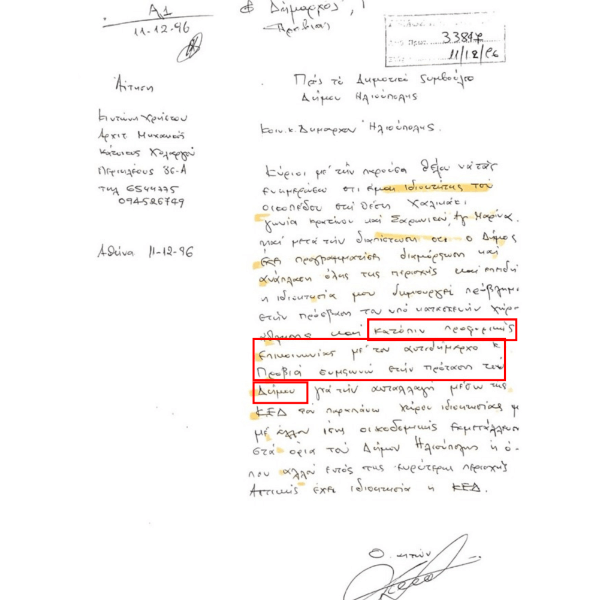 Α1
11-12-96
Δήμαρχος
Προβιας
33817
11/12/96
Αίτηση
Χρήστου
Αρχιτ Μηχανικός
Κάτοικος Χολαργού
Περικλέους 36-Α
τηλ 6544775
094526749
Αθήνα 11-12-96
Πρός τό Δημοτικό Συμβούλιο
Δήμου Ηλιούπολης
Κοιν. κ. Δημαρχον Ηλιούπολης.
Κύριοι με τήν παρούσα θέλω νά σάς
ενημερώσω οτι είμαι ιδιοκτήτης του
οικοπέδου στή θέση Χαλικάκι
γωνία Κρατίνου και Σαρωνικού, Αγ Μαρίνα.
και μετά τήν διαπίστωση οτι ο Δήμος
έχει προγραμματίσει διαμόρφωση και
ανάπλαση όλης της περιοχής και επειδή
η ιδιοκτησία μου δημιουργεί πρόβλημα
στήν πρόσβαση του υπό κατασκευήν χώρου
άθλησης και κατόπιν προφορικής
επικοινωνίας μέ τον αντιδήμαρχο κ.
Προβιά συμφωνώ στήν πρόταση τού
Δήμου γιά τήν ανταλλαγή μέσω της
ΚΕΔ του παραπάνω χώρου ιδιοκτησίας μ
μέ άλλον ίσης οικοδομικής εκμετάλλευσ
στά όρια τού Δήμου Ηλιούπολης ή ό-
που αλλού εντός της ευρύτερης περιοχής
Αττικής έχει ιδιοκτησία η ΚΕΔ.
Ο αιτών